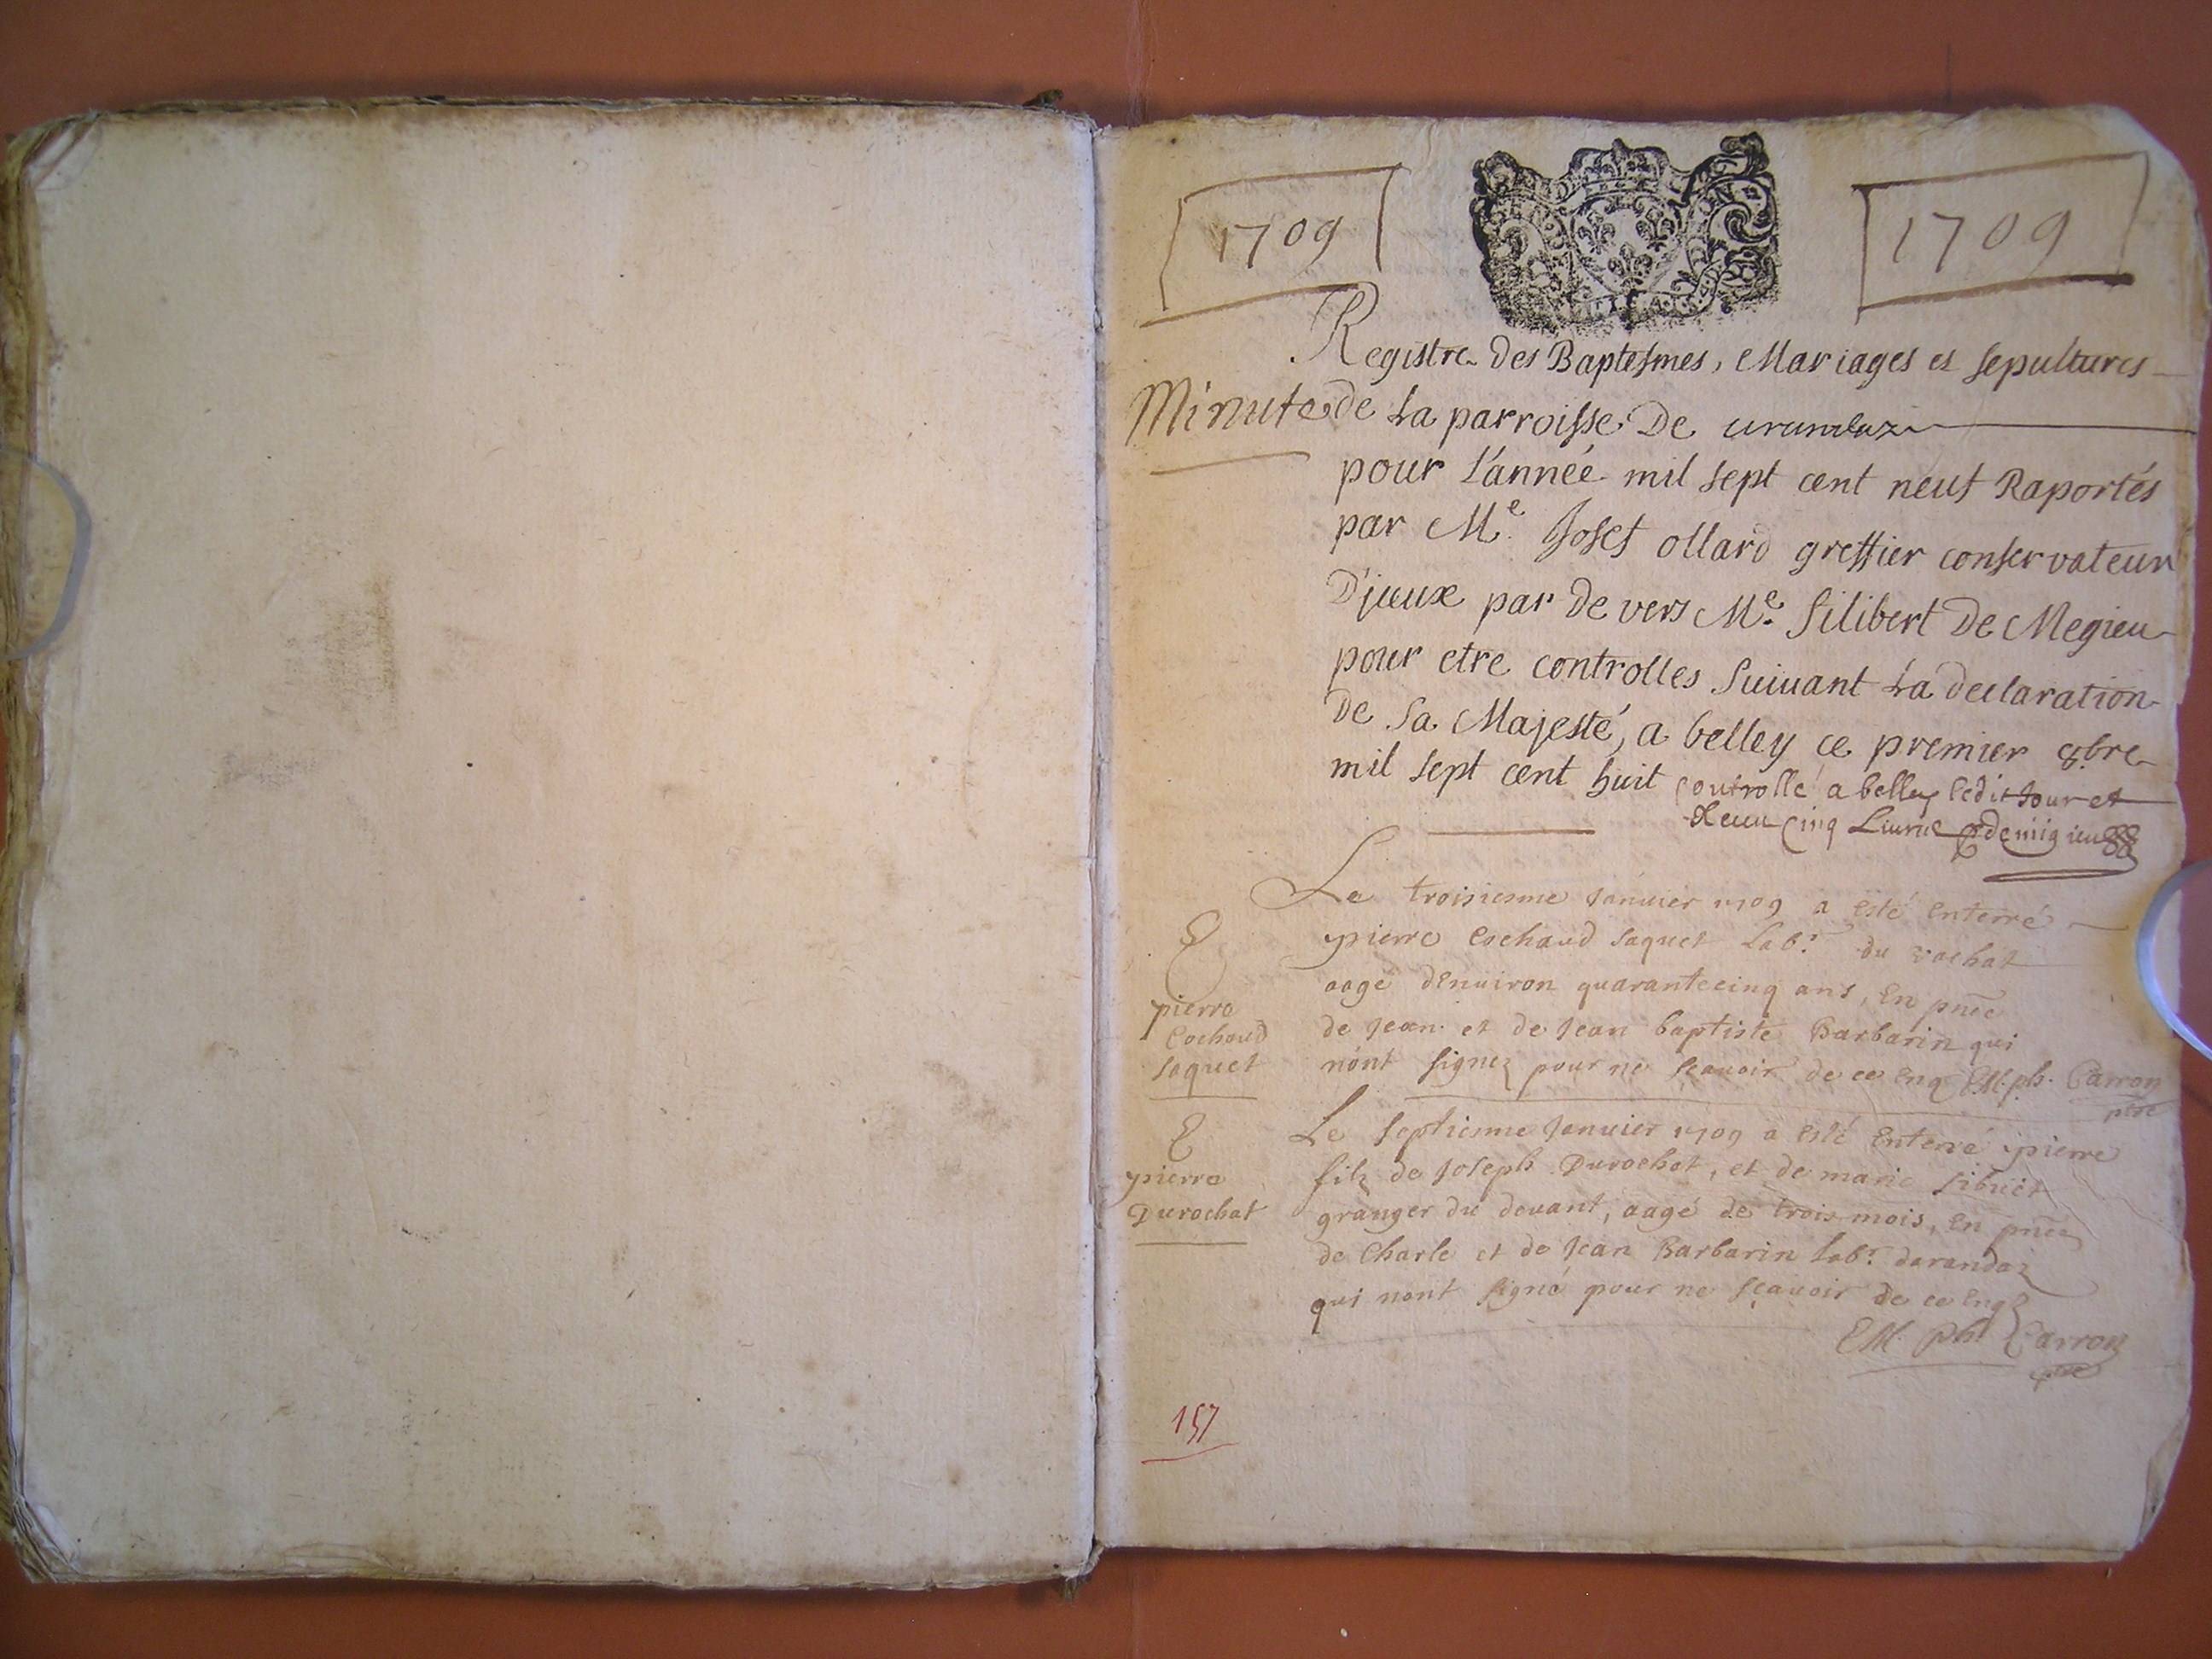 1709
1709
Registre des Baptesmes, Mariages et sepultures
Minute de La parroisse De arandaz
pour L'année mil sept cent neuf Raportés
par Me. Josef ollard greffier conservateur
D'jceux par de vers Me. filibert De Megieu
pour etre controlles Suiuant La declaration
De Sa Majesté, a belley ce premier 8bre
mil sept cent huit controllé a belley ledit Jour et
Receu Cinq Liures demigieu
Le troisiesme Januier 1709 a esté Enterré
pierre Cochaud Saquet Labr. du rochat
aagé d'Enuiron quarantecinq ans, En pnce
de Jean et de Jean baptiste Barbarin qui
n'ont signez pour ne scauoir de ce Enq EM. ph. Carron
ptre
E
pierre
Cochaud
Saquet
Le septiesme Januier 1709 a Esté Enterré pierre
filz de Joseph Durochat, et de marie sibuet
granger du deuant, aagé de trois mois, En pnce
de Charle et de Jean Barbarin Labr. darandaz
qui nont signé pour ne scauoir de ce Enq
EM. Ph. Carron
ptre
E
pierre
Durochat
157